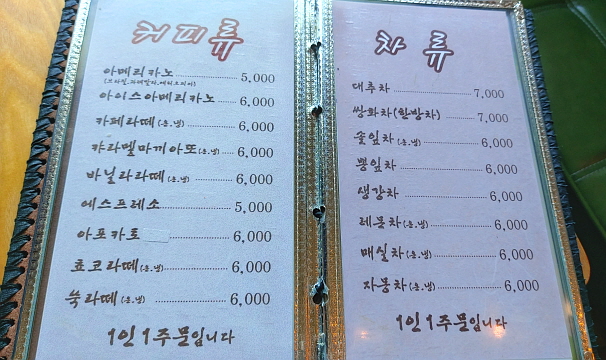 커피류
아메리카노 5,000
(브라질,과테말라,에티오피아)
아이스아메리카노 6,000
카페라떼(온.냉) 6,000
캬라멜마끼아또(온.냉) 6,000
바닐라라떼(온.냉) 6,000
에스프레소 5,000
아포카토 6,000
쵸코라떼(온.냉) 6,000
쑥라떼(온.냉) 6,000
1인 1주문입니다
차 류
대추차 7,000
쌍화차(한방차) 7,000
솔잎차(온.냉) 6,000
뽕잎차 6,000
생강차 6,000
레몬차(온.냉) 6,000
매실차(온.냉) 6,000
자몽차(온.냉) 6,000
1인 1주문입니다